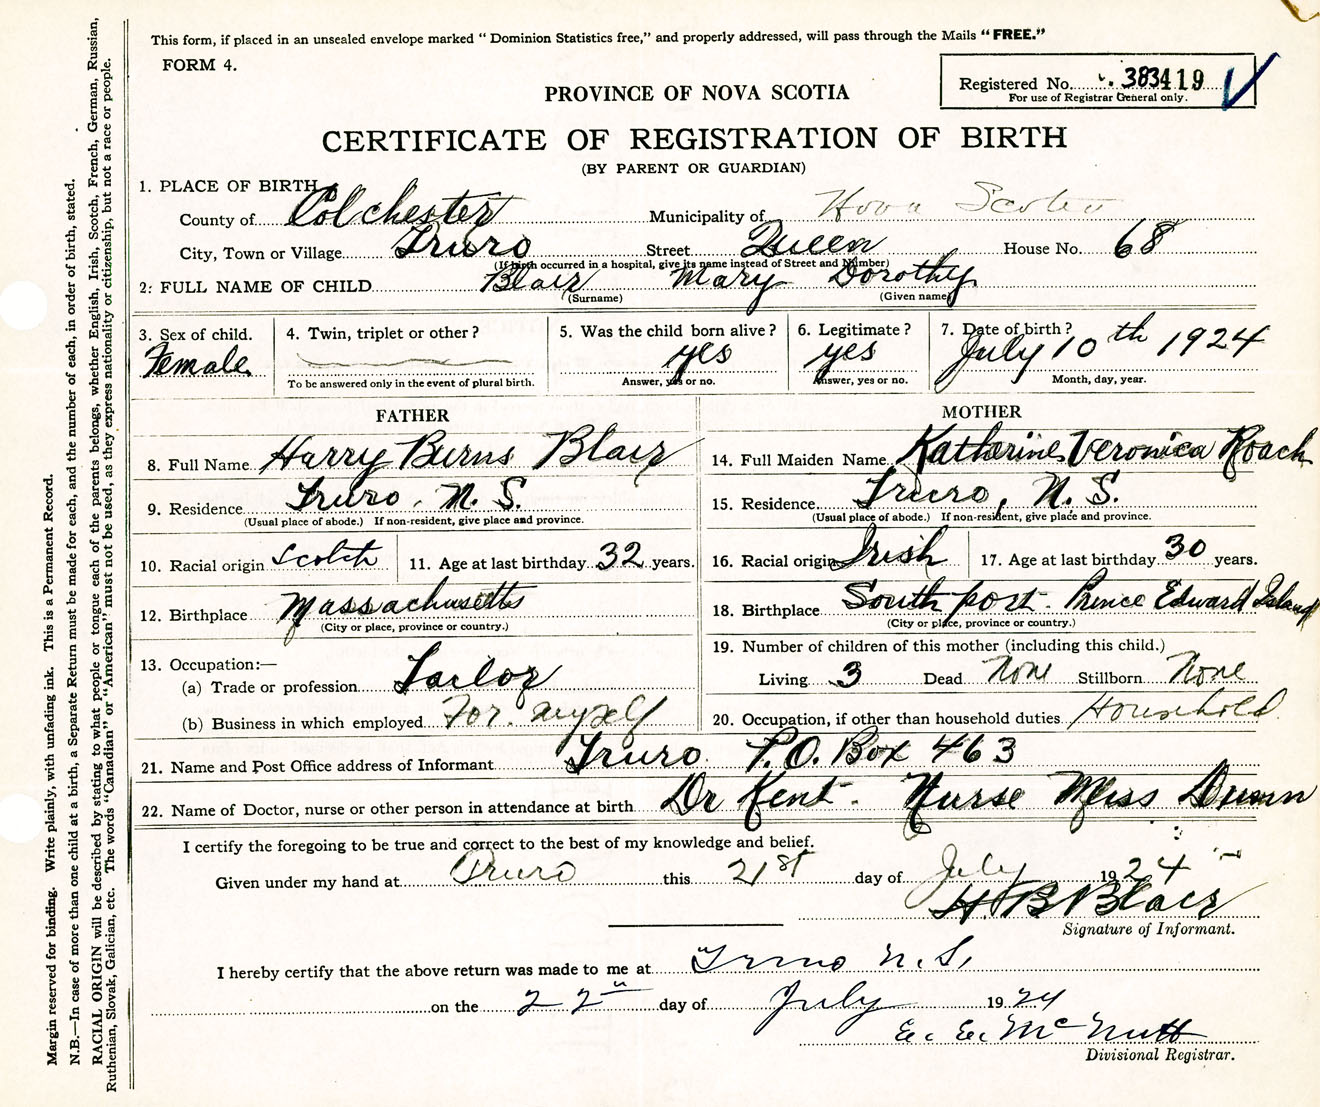 This form, if placed in an unsealed envelope marked "Dominion Statistics free," and properly addressed, will pass through the Mails "FREE."
FORM 4.
Registered No. 383419
For use of Registrar General only.
PROVINCE OF NOVA SCOTIA
CERTIFICATE OF REGISTRATION OF BIRTH
(BY PARENT OR GUARDIAN)
1. PLACE OF BIRTH
County of Colchester Municipality of Nova Scotia
City, Town or Village Truro Street Queen House No. 68
(If birth occurred in a hospital, give its name instead of Street and Number)
2: FULL NAME OF CHILD Blair Mary Dorothy
(Surname) (Given name)
3. Sex of child. 4. Twin, triplet or other? 5. Was the child born alive? 6. Legitimate? 7. Date of birth?
Female yes yes July 10th 1924
To be answered only in the event of plural birth. Answer, yes or no. Answer, yes or no. Month, day, year.
FATHER MOTHER
8. Full Name Harry Burns Blair 14. Full Maiden Name Katherine Veronica Roach
9. Residence Truro, N. S. 15. Residence Truro, N. S.
(Usual place of abode.) If non-resident, give place and province. (Usual place of abode.) If non-resident, give place and province.
10. Racial origin Scotch 11. Age at last birthday 32 years. 16. Racial origin Irish 17. Age at last birthday 30 years.
12. Birthplace Massachusetts 18. Birthplace South port. Prince Edward Island
(City or place, province or country.) (City or place, province or country.)
13. Occupation:— 19. Number of children of this mother (including this child.)
(a) Trade or profession Tailor Living 3 Dead None Stillborn None
(b) Business in which employed For. myself 20. Occupation, if other than household duties Household
21. Name and Post Office address of Informant Truro P.O. Box 463
22. Name of Doctor, nurse or other person in attendance at birth Dr Kent. Nurse Miss Dunn
I certify the foregoing to be true and correct to the best of my knowledge and belief.
Given under my hand at Truro this 21st day of July 1924
H. B Blair
Signature of Informant.
I hereby certify that the above return was made to me at Truro N.S.
on the 22 day of July 1924
E. E. McNutt
Divisional Registrar.
Margin reserved for binding. Write plainly, with unfading ink. This is a Permanent Record.
N.B.—In case of more than one child at a birth, a Separate Return must be made for each, and the number of each, in order of birth, stated.
RACIAL ORIGIN will be described by stating to what people or tongue each of the parents belongs, whether English, Irish, Scotch, French, German, Russian,
Ruthenian, Slovak, Galician, etc. The words "Canadian" or "American" must not be used, as they express nationality or citizenship, but not a race or people.